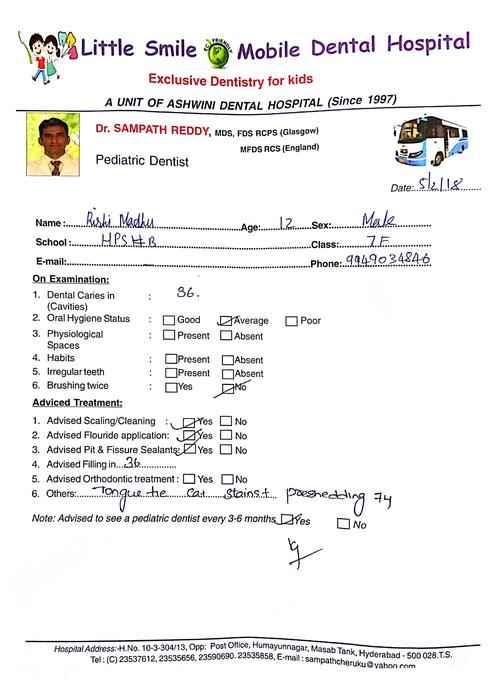 Little Smile ECO FRIENDLY Mobile Dental Hospital
Exclusive Dentistry for kids
A UNIT OF ASHWINI DENTAL HOSPITAL (Since 1997)
Dr. SAMPATH REDDY, MDS, FDS RCPS (Glasgow)
MFDS RCS (England)
Pediatric Dentist
Date: 5/2/18
Name: Rishi Madhu Age: 12 Sex: Male
School: HPS HB Class: 7F
E-mail: Phone: 9949034846
On Examination:
1. Dental Caries in : 36.
(Cavities)
2. Oral Hygiene Status : Good Average Poor
3. Physiological : Present Absent
Spaces
4. Habits : Present Absent
5. Irregular teeth : Present Absent
6. Brushing twice : Yes No
Adviced Treatment:
1. Advised Scaling/Cleaning : Yes No
2. Advised Flouride application: Yes No
3. Advised Pit & Fissure Sealants: Yes No
4. Advised Filling in...36
5. Advised Orthodontic treatment: Yes No
6. Others: Tongue tie Cat stains+ preshedding 74
Note: Advised to see a pediatric dentist every 3-6 months Yes No
Hospital Address:-H.No. 10-3-304/13, Opp: Post Office, Humayunnagar, Masab Tank, Hyderabad - 500 028.T.S.
Tel : (C) 23537612, 23535656, 23590690. 23535858, E-mail : sampathcheruku@yahoo.com